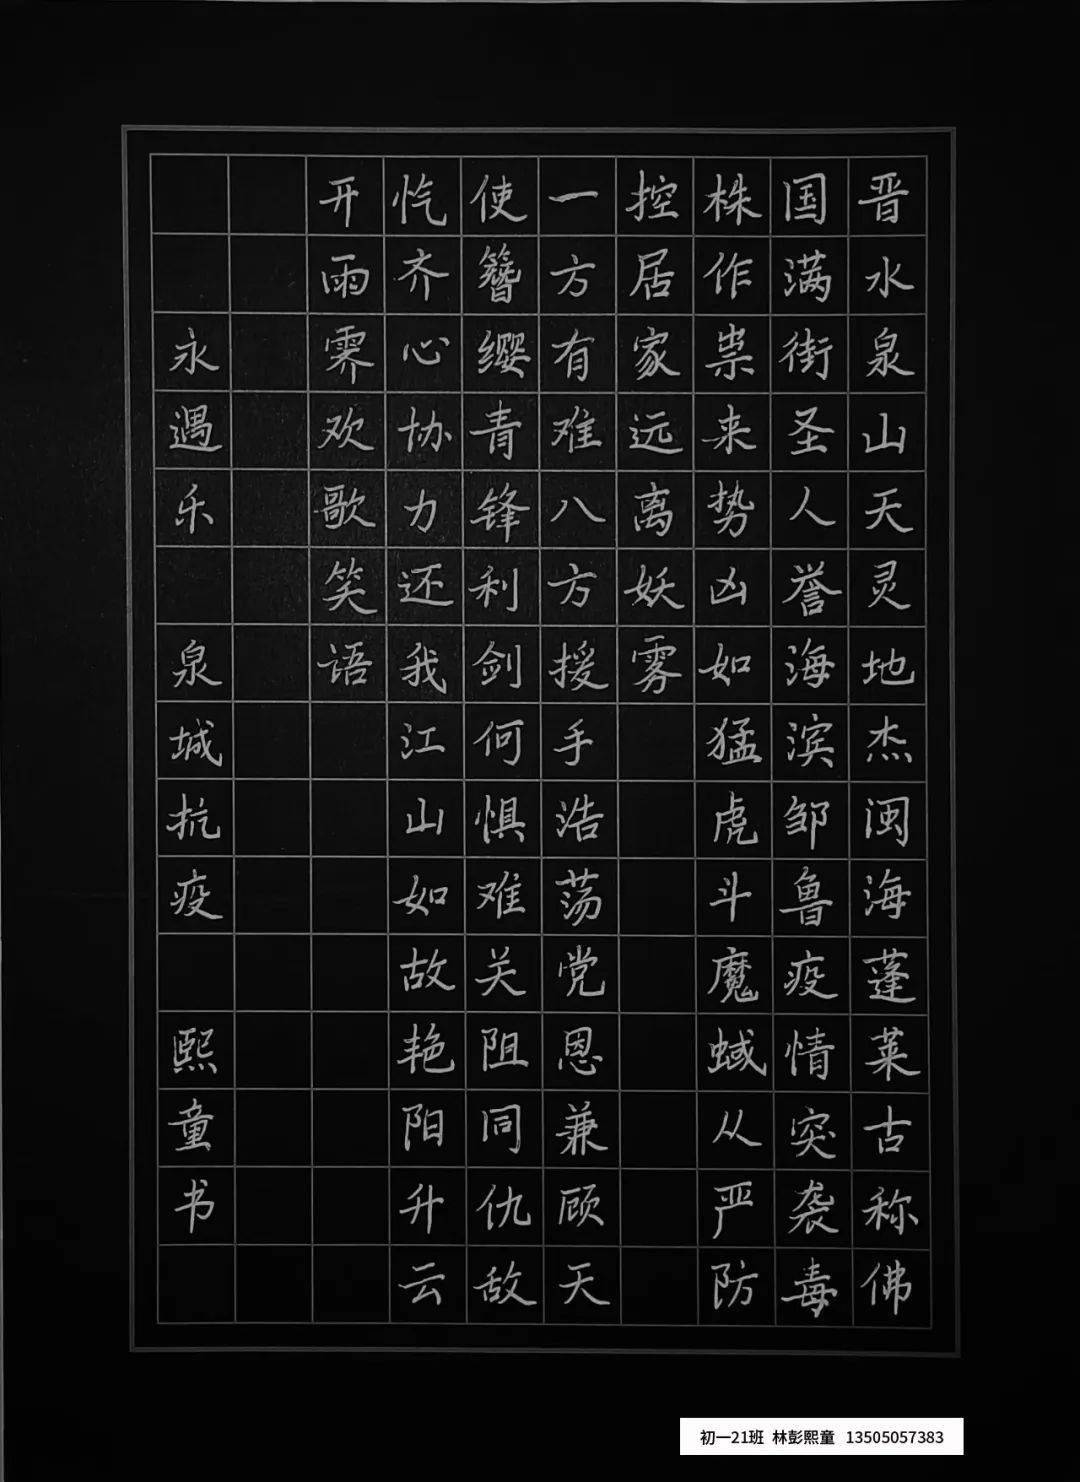 晋水泉山天灵地杰闽海蓬莱古称佛
国满街圣人誉海滨邹鲁疫情突袭毒
株作祟来势凶如猛虎斗魔蜮从严防
控居家远离妖雾
一方有难八方援手浩荡党恩兼顾天
使簪缨青锋利剑何惧难关阻同仇敌
忾齐心协力还我江山如故艳阳升云
开雨霁欢歌笑语
永遇乐 泉城抗疫 熙童书
初一21班 林彭熙童 13505057383